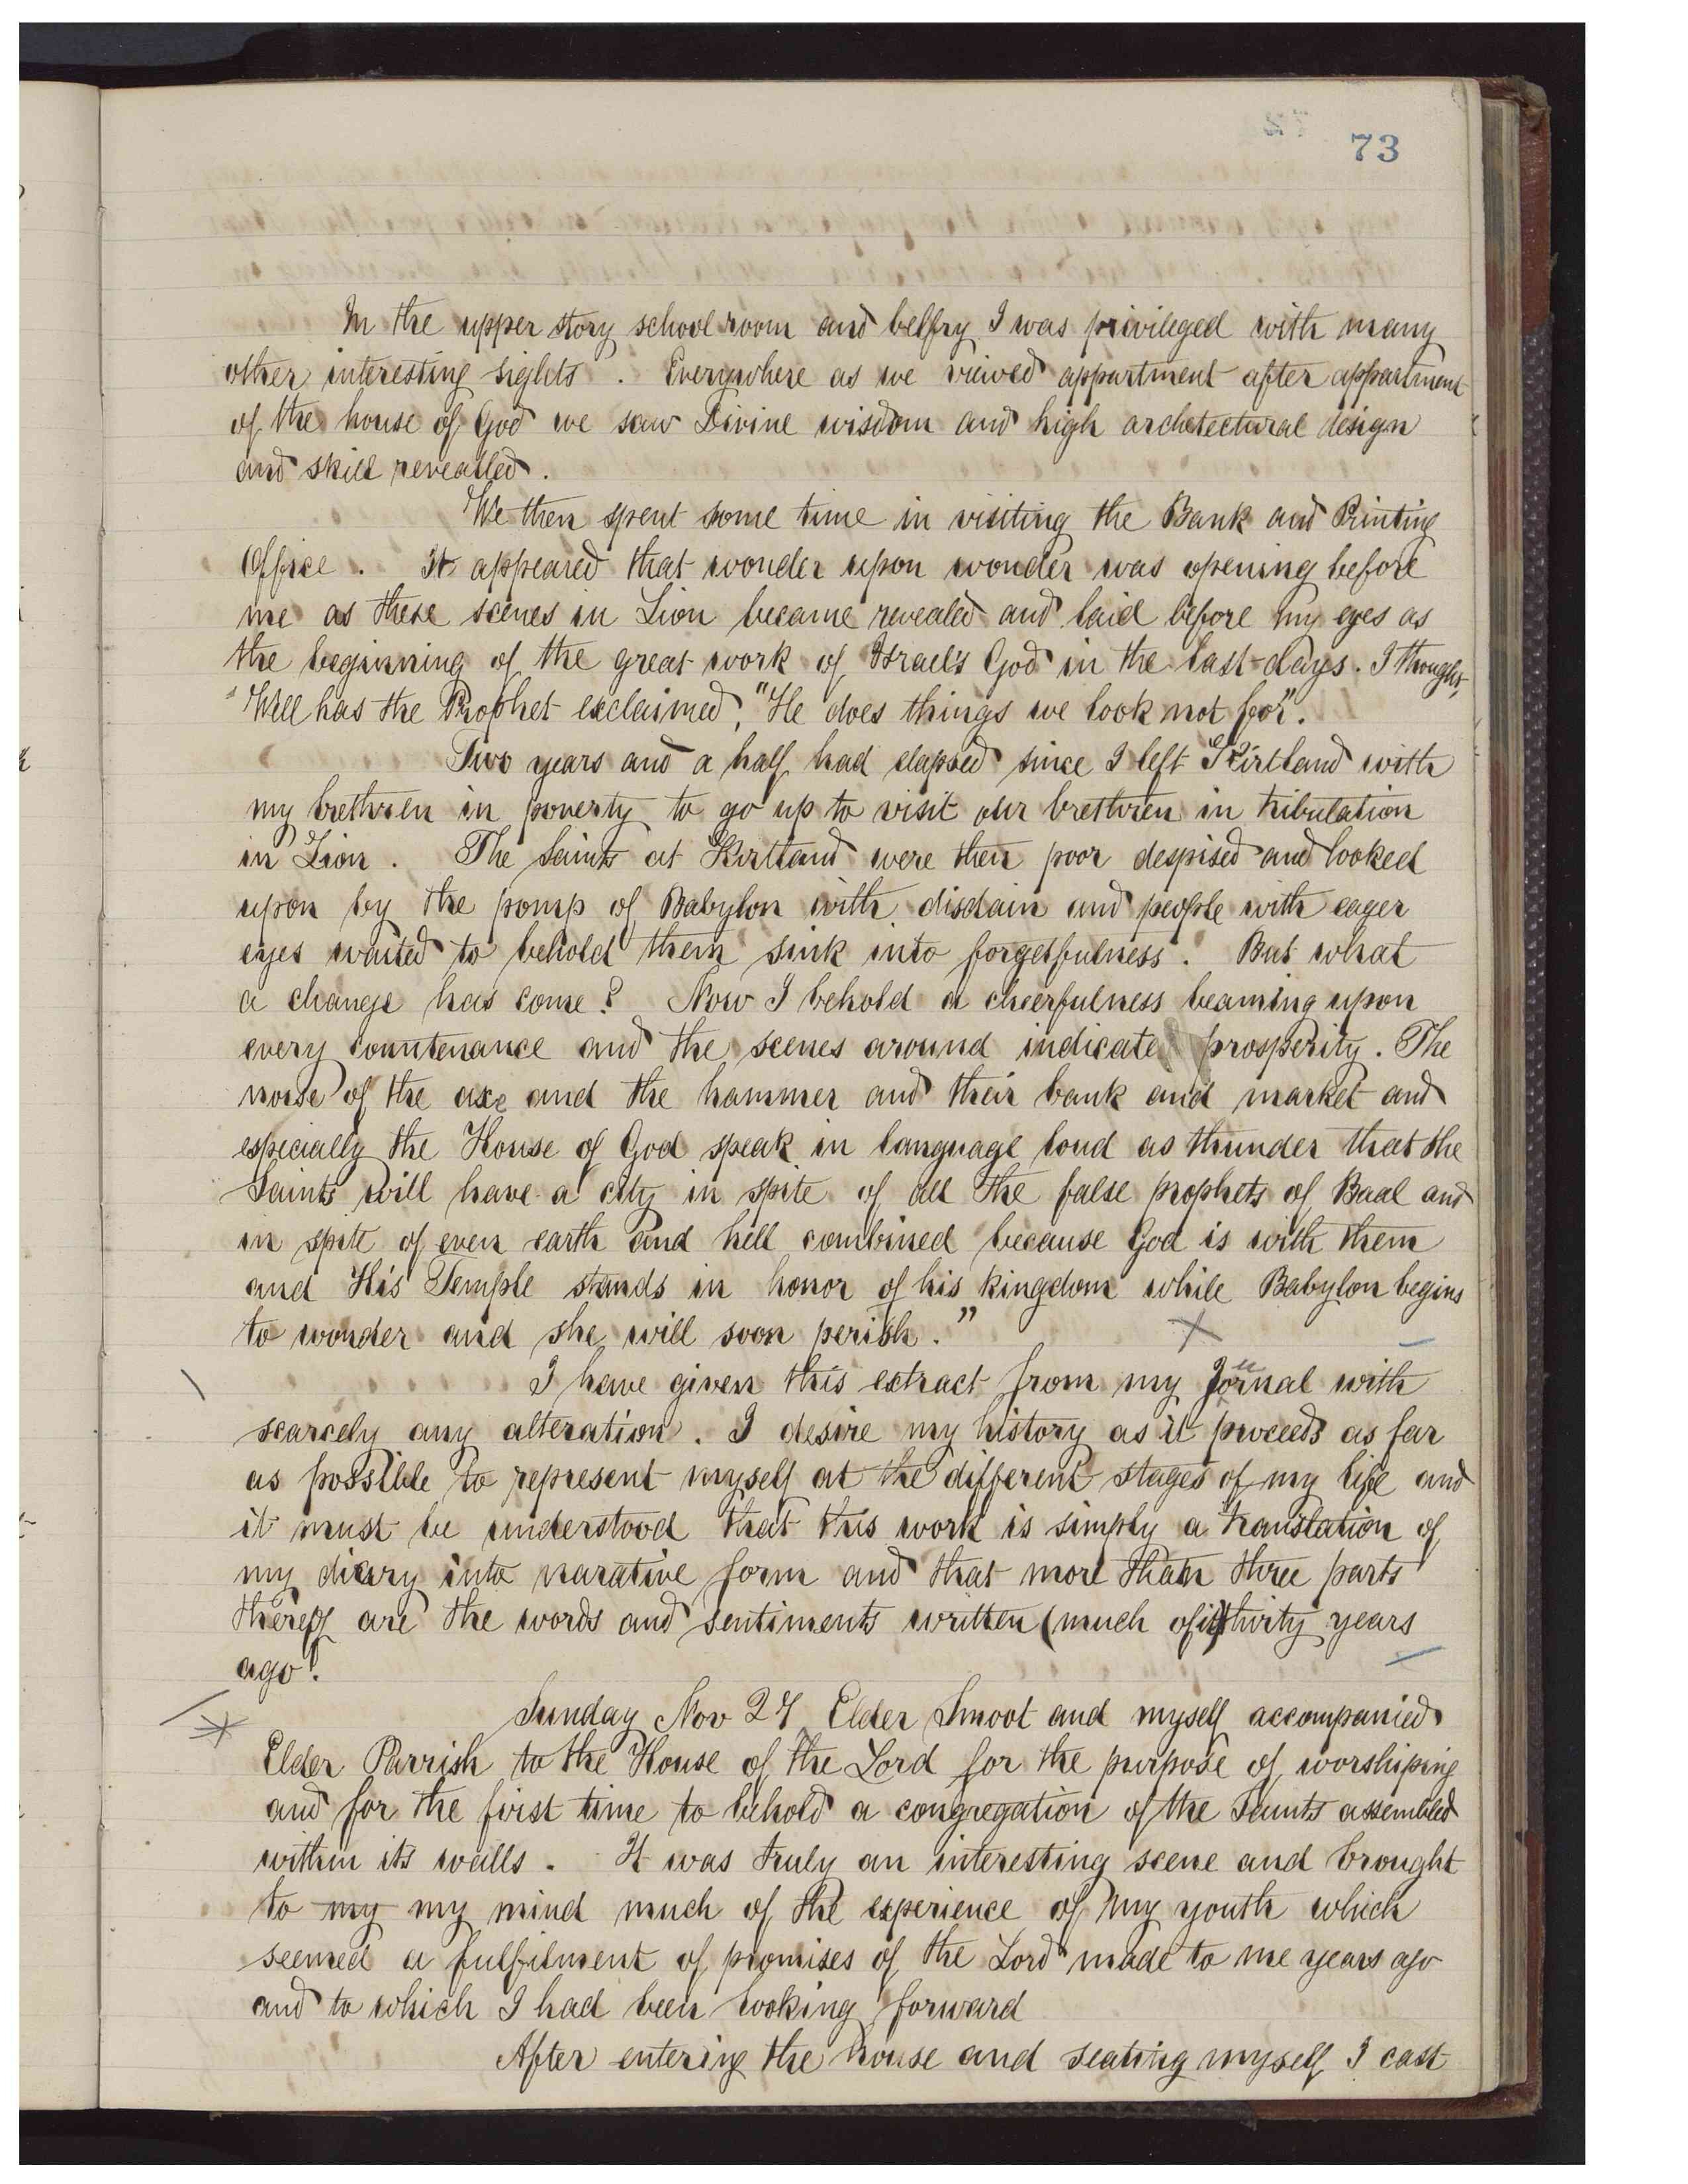 73
In the upper story school room and belfry I was privileged with many
other interesting sights . Everywhere as we viewed appartment after appartment
of the house of God we saw Divine wisdom and high archetectural design
and skill revealled .
We then spent some time in visiting the Bank and Printing
Office . It appeared that wonder upon wonder was opening before
me as these scenes in Zion became revealed and laid before my eyes as
the beginning of the great work of Israel's God in the last-days. I thought,
"Well has the Prophet exclaimed, "He does things we look not for".
Two years and a half had elapsed since I left Kirtland with
my brethren in poverty to go up to visit our brethren in tribulation
in Zion . The Saints at Kirtland were then poor despised and looked
upon by the pomp of Babylon with disdain and people with eager
eyes waited to behold them sink into forgetfulness. But what
a change has come? Now I behold a cheerfulness beaming upon
every countenance and the scenes around indicate prosperity. The
noise of the axe and the hammer and their bank and market and
especially the House of God speak in language loud as thunder that the
Saints will have a city in spite of all the false prophets of Baal and
in spite of even earth and hell combined because God is with them
and His Temple stands in honor of his kingdom while Babylon begins
to wonder and she will soon perish."
I have given this extract from my Journal with
scarcely any alteration. I desire my history as it proceeds as far
as possible to represent myself at the different stages of my life and
it must be understood that this work is simply a translation of
my diary into narative form and that more than three parts
thereof are the words and sentiments written (much of it) thirty years
ago!
Sunday Nov 27 Elder Smoot and myself accompanied
Elder Parrish to the House of the Lord for the purpose of worshiping
and for the first time to behold a congregation of the Saints assembled
within its walls . It was truly an interesting scene and brought
to my my mind much of the experience of my youth which
seemed a fulfilment of promises of the Lord made to me years ago
and to which I had been looking forward
After entering the house and seating myself I cast